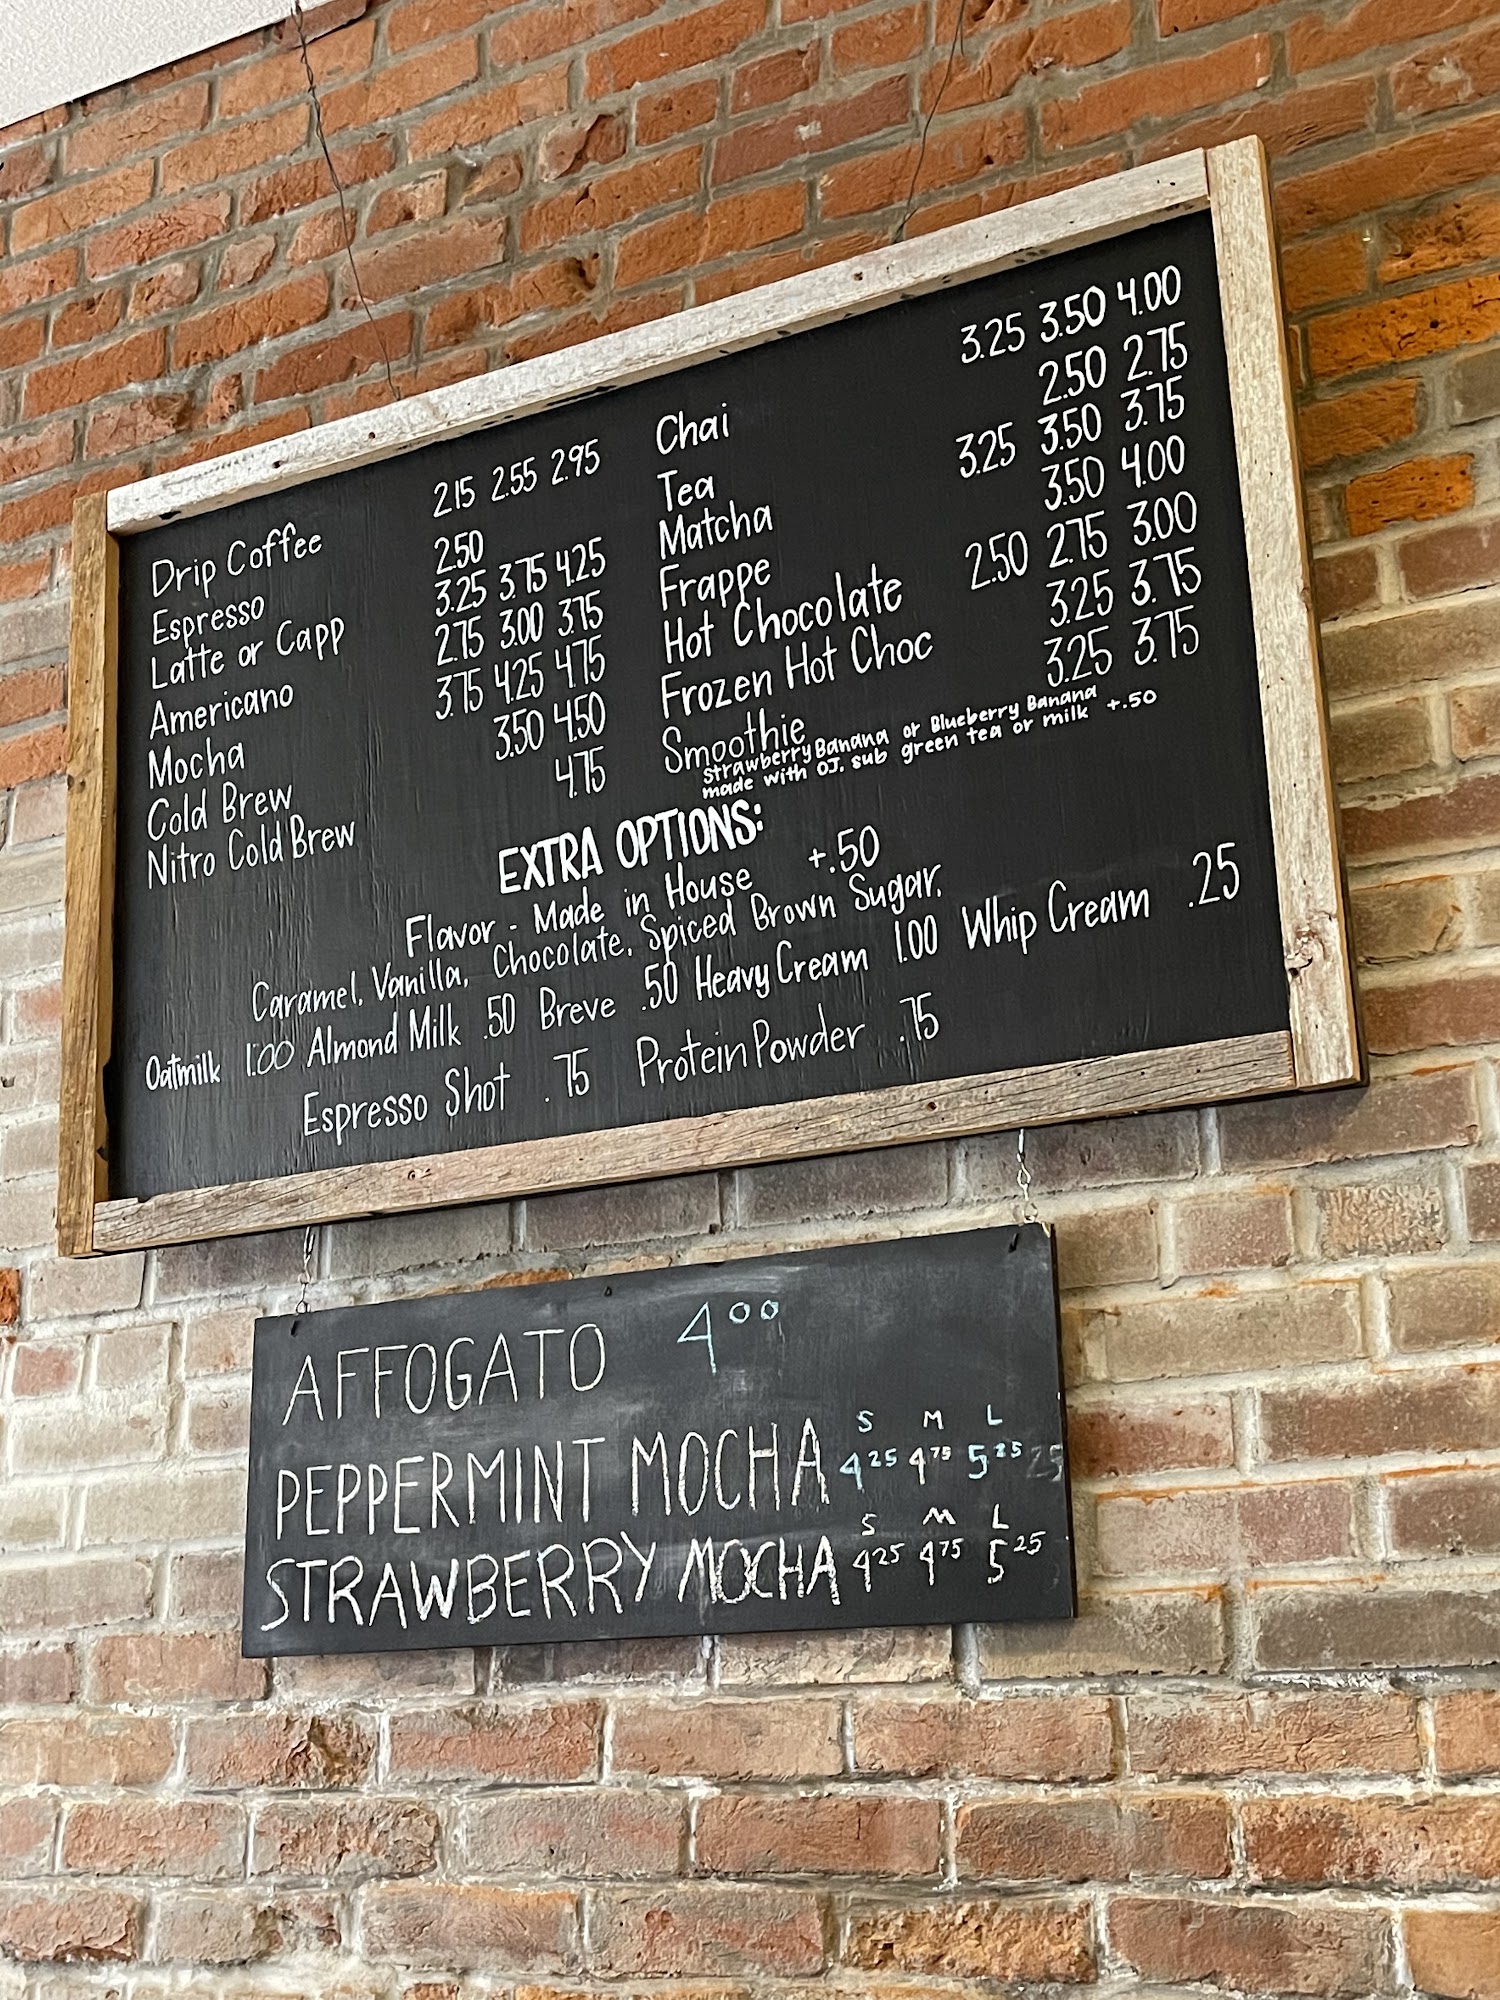 Drip Coffee 2.15 2.55 2.95
Espresso 2.50
Latte or Capp 3.25 3.75 4.25
Americano 2.75 3.00 3.75
Mocha 3.75 4.25 4.75
Cold Brew 3.50 4.50
Nitro Cold Brew 4.75
Chai 3.25 3.50 4.00
Tea 2.50 2.75
Matcha 3.25 3.50 3.75
Frappe 3.50 4.00
Hot Chocolate 2.50 2.75 3.00
Frozen Hot Choc 3.25 3.75
Smoothie 3.25 3.75
Strawberry Banana or Blueberry Banana
made with OJ. sub green tea or milk +.50
EXTRA OPTIONS:
Flavor - Made in House +.50
Caramel, Vanilla, Chocolate, Spiced Brown Sugar,
Oatmilk 1.00 Almond Milk .50 Breve .50 Heavy Cream 1.00 Whip Cream .25
Espresso Shot .75 Protein Powder .75
AFFOGATO 4⁰⁰
S M L
PEPPERMINT MOCHA 4²⁵ 4⁷⁵ 5²⁵ 25
S M L
STRAWBERRY MOCHA 4²⁵ 4⁷⁵ 5²⁵